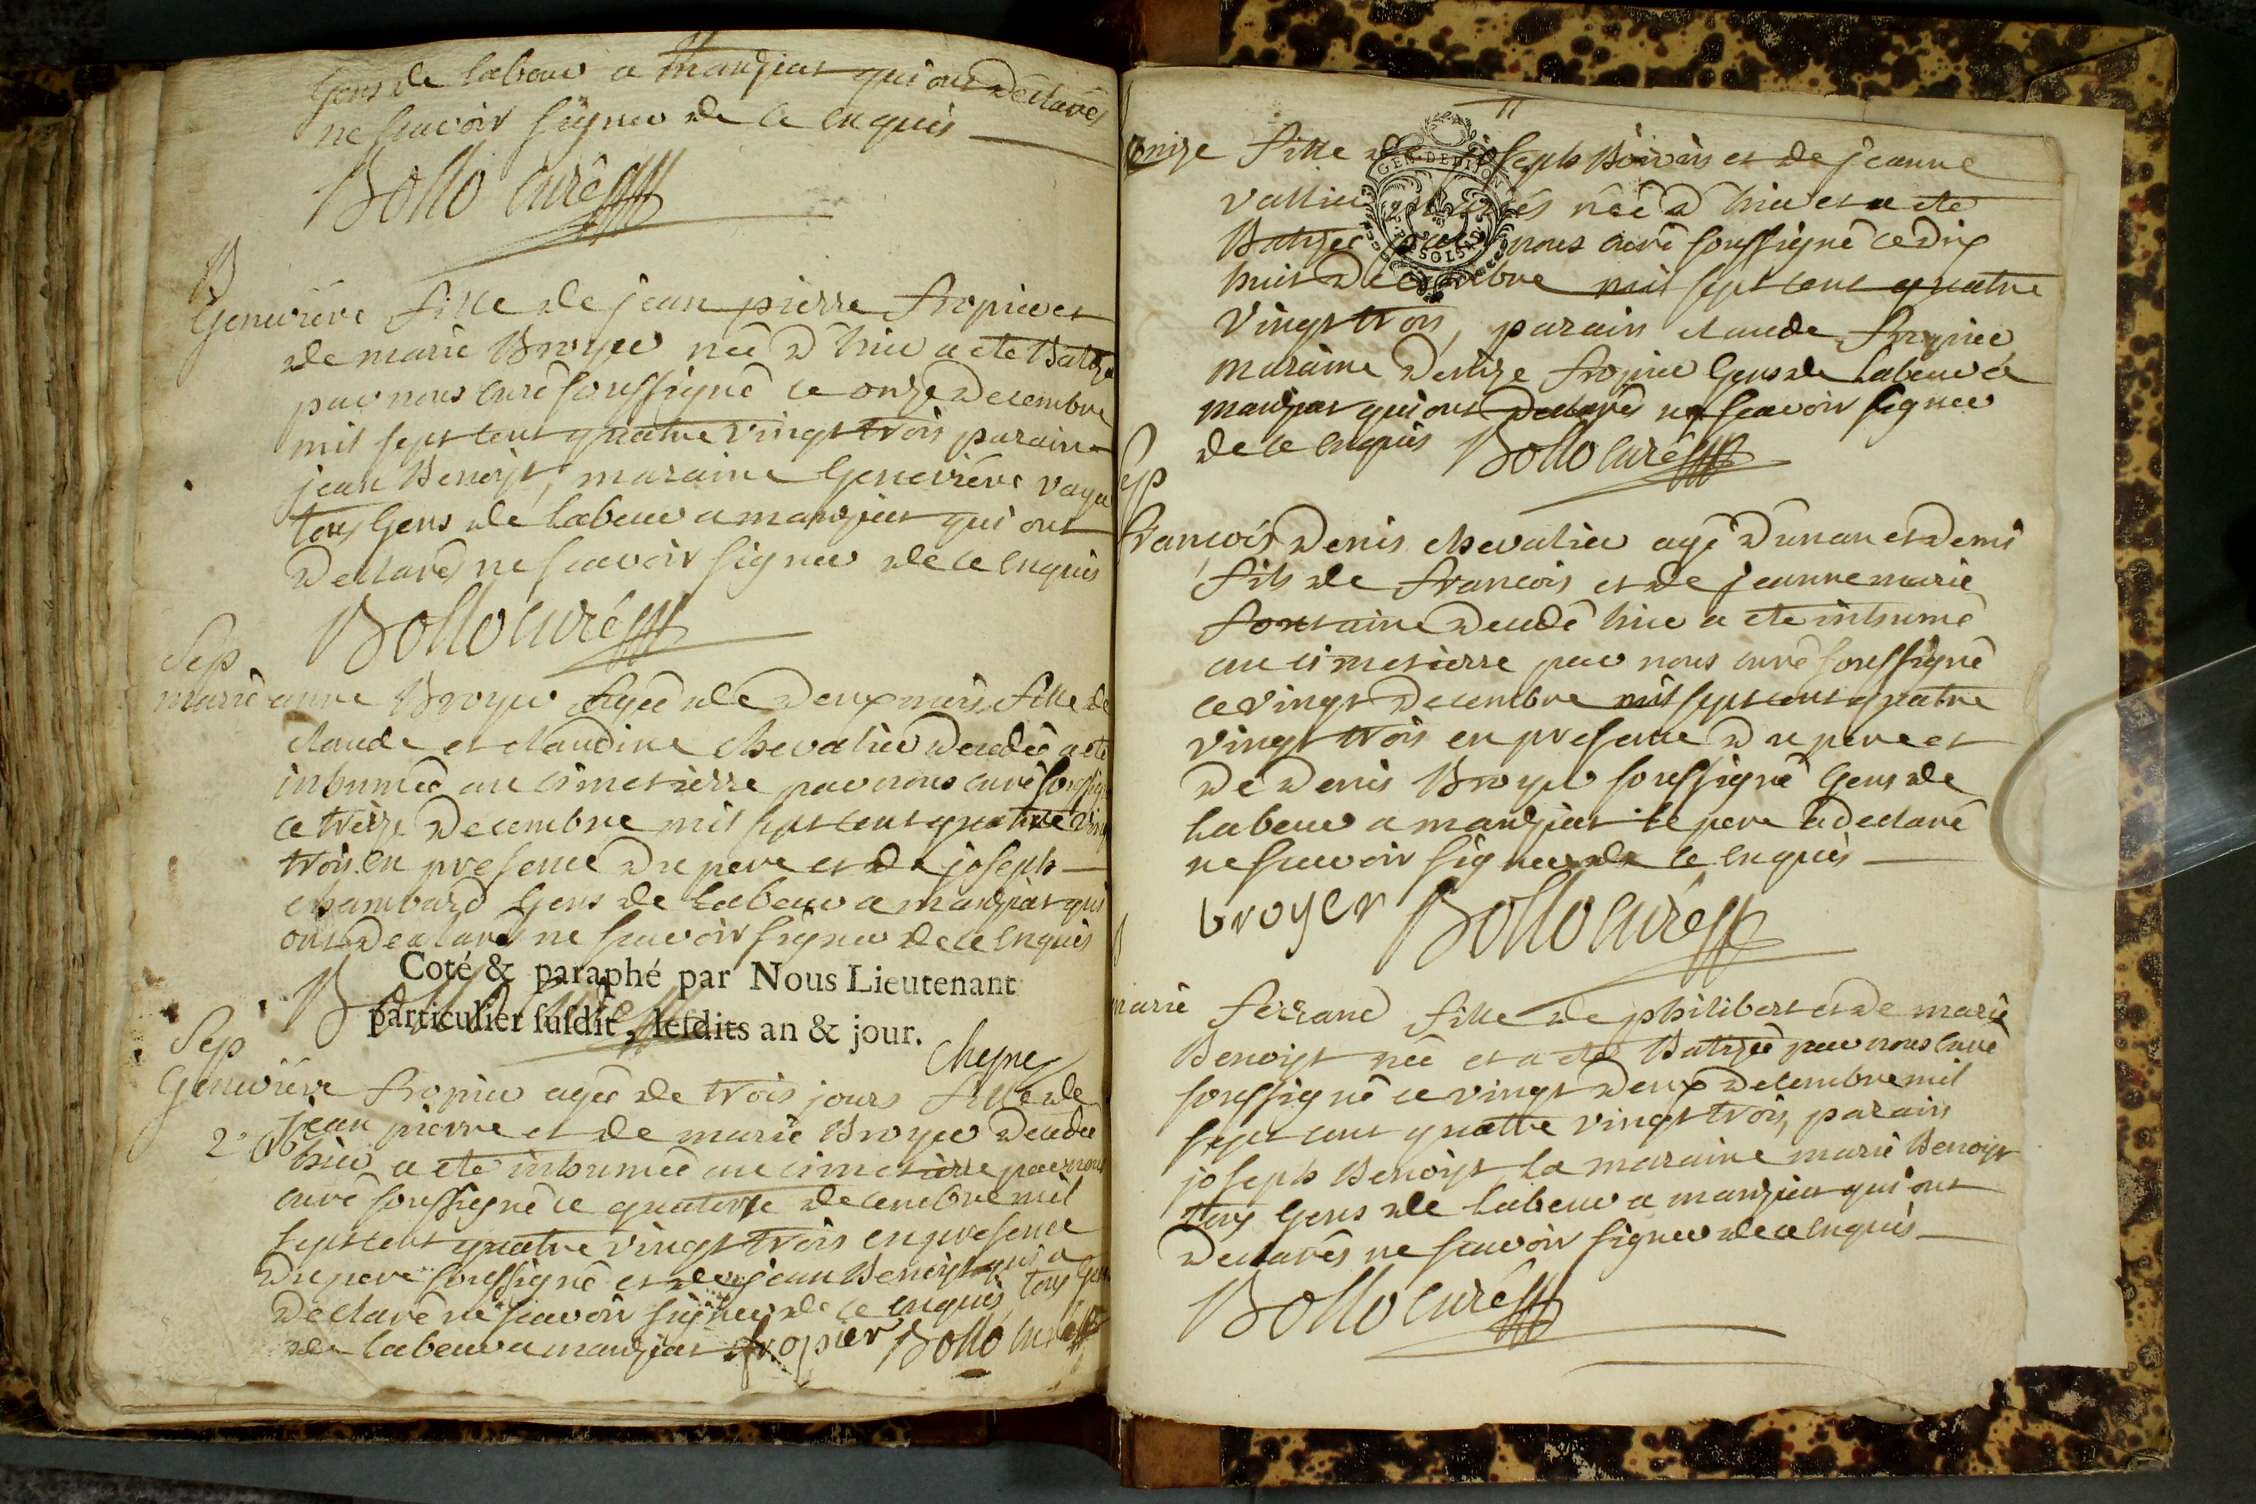 gens de labeur a manziat qui ont déclarés
ne scavoir signer de ce enquis
Bollo curé
B
Genevieve fille de jean pierre fropier et
de marie Broyer née d'hier a ete Batizé
par nous curé soussigné ce onze decembre
mil sept cent quatre vingt trois parain
jean Benoist, maraine Genevieve
tous gens de labeur a manziat qui ont
declarés ne scavoir signer de ce enquis
Bollo curé
Sep
marie anne Broyer agée de deux mois fille de
claude et claudine chevalier decedée a ete
inhumée au cimetierre par nous curé
ce treize decembre mil sept cent quatre
trois en presence du pere et de joseph
chambard gens de labeur a manziat qui
ont declarés ne scavoir signer de ce enquis
Coté & paraphé par Nous Lieutenant
particulier susdit, lesdits an & jour.
Sep
Genevieve fropier agée de trois jours fille de
jean pierre et de marie Broyer decedée
hier a ete inhumée au cimetierre par nous
curé soussigné ce quatorze decembre mil
sept cent quatre vingt trois en presence
du pere soussigné et de jean Benoist qui a
declaré ne scavoir signer de ce enquis tous
de labeur a manziat fropier Bollo curé
11
GEN. DE DIJON
fille de joseph Boivin et de jeanne
née d'hier et a ete
Batizée par nous curé soussigné ce dix
huit decembre mil sept cent quatre
vingt trois, parain claude fropier
maraine denize fropier gens de labeur a
manziat qui ont declarés ne scavoir signer
de ce enquis Bollo curé
Sep
francois denis chevalier agé d'un an et demi
fils de francois et de jeanne marie
fontaine decedé hier a ete inhumé
au cimetierre par nous curé soussigné
ce vingt decembre mil sept cent quatre
vingt trois en presence du pere et
de denis Broyer soussigné gens de
labeur a manziat le pere a declaré
ne scavoir signer de ce enquis
broyer Bollo curé
marie ferrand fille de philibert et de marie
Benoist née et a ete Batizée par nous curé
soussigné ce vingt deux decembre mil
sept cent quatre vingt trois, parain
joseph Benoist la maraine marie Benoist
tous gens de labeur a manziat qui ont
declarés ne scavoir signer de ce enquis
Bollo curé